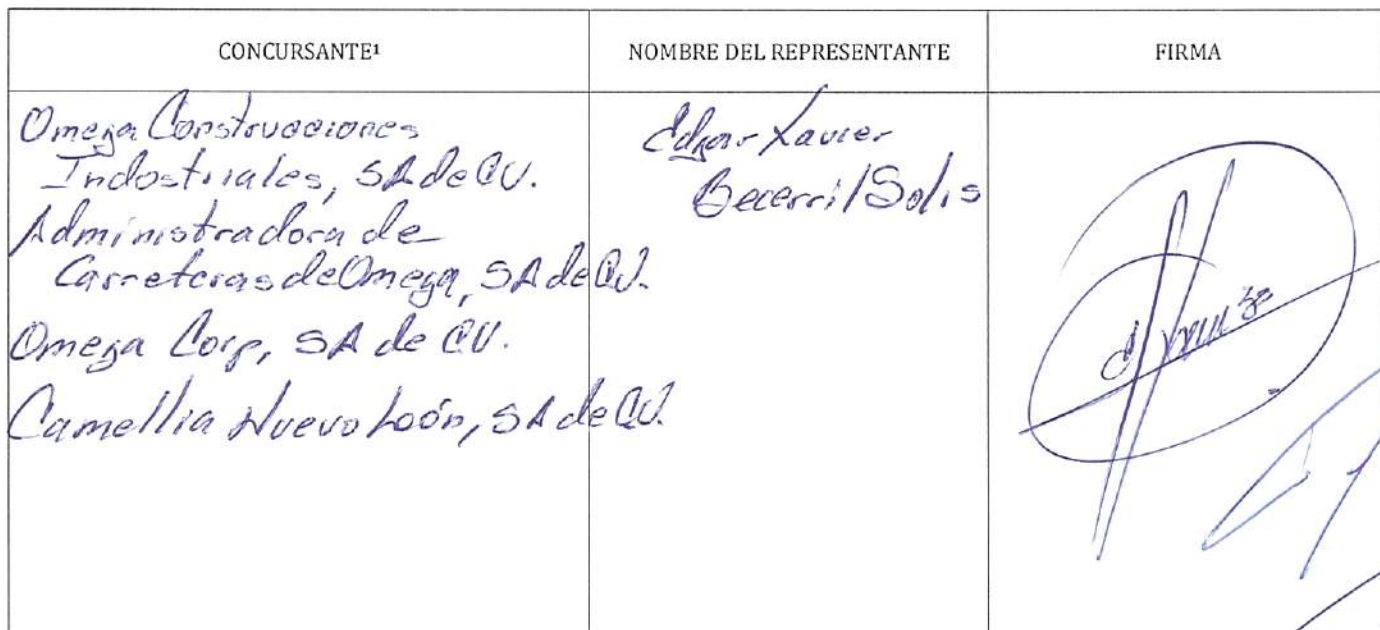 CONCURSANTE¹
NOMBRE DEL REPRESENTANTE
FIRMA
Omega Construcciones
Industriales, SA de CV.
Administradora de
Carreteras de Omega, SA de CV.
Omega Corp, SA de CV.
Camellia Nuevo León, SA de CV.
Edgar Xavier
Becerril Solis